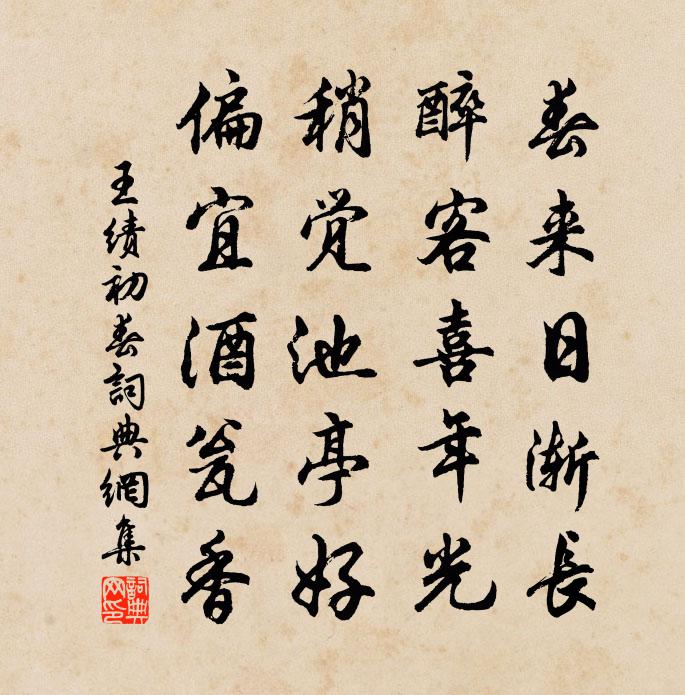 春来日渐長
醉客喜年光
稍觉池亭好
偏宜酒瓮香
王绩初春詞典網集
詞典网印